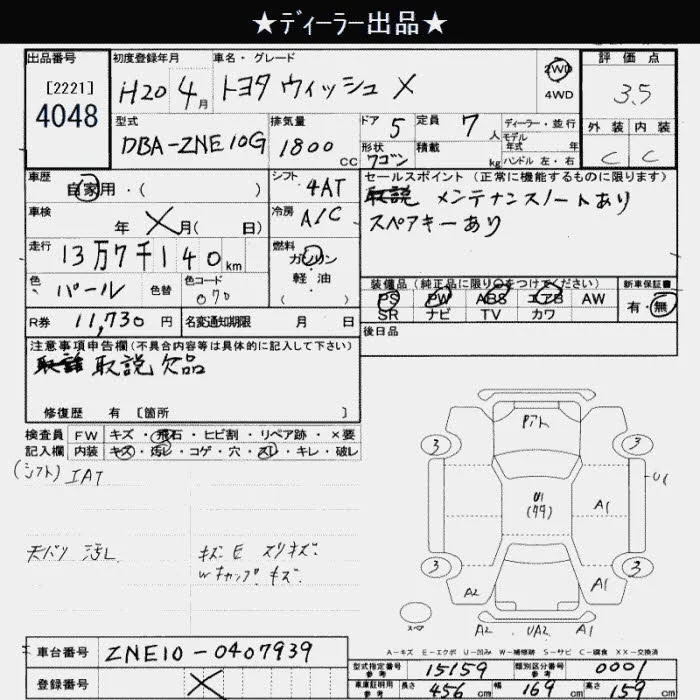 ★ディーラー出品★
出品番号 初度登録年月 車名・グレード 評価点
[2221] H20 4月 トヨタ ウィッシュ X 2WD 4WD 3.5
4048
型式 排気量 ドア 5 定員 7人 ディーラー・並行 外装 内装
DBA-ZNE10G 1800 CC 形状 ワゴン 積載 kg モデル年式 年 ハンドル 左・右 C C
車歴 自家用・( ) シフト 4AT セールスポイント(正常に機能するものに限ります)
車検 年 X 月( 日) 冷房 A/C 取説 メンテナンスノートあり
スペアキーあり
走行 13万7千140km 燃料 ガソリン
軽油
( )
色 パール 色替 色コード 070 装備品(純正品に限り○をつけてください) 新車保証書
PS PW ABS エアB AW 有・無
SR ナビ TV カワ
R券 11,730円 名変通知期限 月 日 後日品
注意事項申告欄(不具合内容等は具体的に記入して下さい)
取説 欠品
修復歴 有 [箇所 ]
検査員 FW キズ・飛石・ヒビ割・リペア跡・×要
記入欄 内装 キズ・汚レ・コゲ・穴・スレ・キレ・破レ
(シフト) IAT
天バリ 汚レ キズ E スリキズ
Wキャップ キズ
Pアト
3 3
U1
U1 A1
3 3
A2 A1
A2 UA2 A1
A-キズ E-エクボ U-凹み W-補修跡 S-サビ C-腐食 XX-交換済
車台番号 ZNE10-0407939
登録番号 X
型式指定番号 参考 15159 類別区分番号 参考 0001
車庫証明用 参考 長さ 456cm 幅 169cm 高さ 159cm